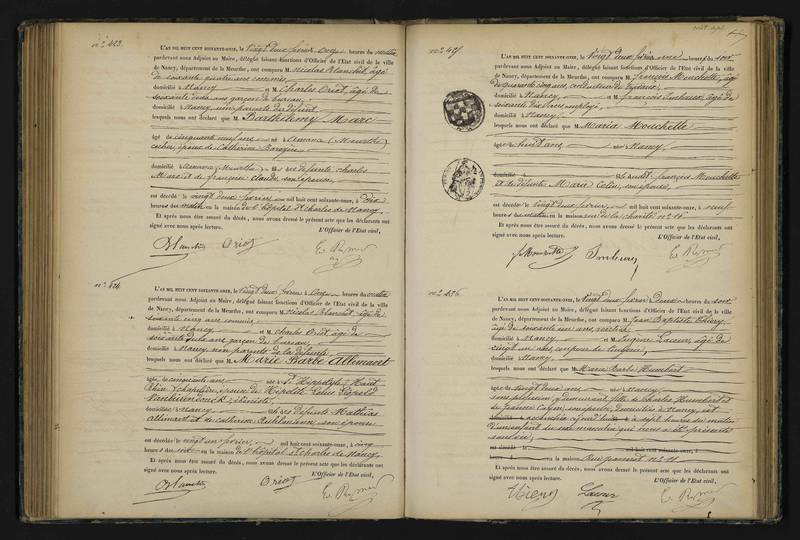 n° 423.
L'AN MIL HUIT CENT SOIXANTE-ONZE, le vingt deux février, onze heures du matin
pardevant nous Adjoint au Maire, délégué faisant fonctions d'Officier de l'État civil de la ville
de Nancy, département de la Meurthe, ont comparu M. Nicolas Blanchet, âgé
de soixante ans, commis,
domicilié à Nancy et M. Charles Oriot, âgé de
soixante deux ans, garçon de bureau,
domicilié à Nancy, non parents du défunt
lesquels nous ont déclaré que M. Barthélemy Marc
âgé de cinquante neuf ans né à Amance (Meurthe)
époux de Catherine
domicilié à Amance (Meurthe) fils de défunts Charles
Marc et de Françoise Claude, son épouse,
est décédé le vingt deux février, mil huit cent soixante-onze, à dix
heures du matin en la maison de l'hôpital St Charles de Nancy.
Et après nous être assuré du décès, nous avons dressé le présent acte que les déclarants ont
signé avec nous après lecture. L'Officier de l'État civil,
Blanchet Oriot
n° 424
L'AN MIL HUIT CENT SOIXANTE-ONZE, le vingt deux février à onze heures du matin
pardevant nous Adjoint au Maire, délégué faisant fonctions d'Officier de l'État civil de la ville
de Nancy, département de la Meurthe, ont comparu M. Nicolas Blanchet, âgé de
soixante cinq ans, commis,
domicilié à Nancy et M. Charles Oriot, âgé de
soixante deux ans, garçon de bureau,
domicilié à Nancy, non parents de la défunte
lesquels nous ont déclaré que M. Marie Barbe Allemant
âgée de cinquante ans, née à St Hippolyte, Haut
Rhin, épouse de Hipolite
domiciliée à Nancy fille des défunts Mathias
Allemant et de Catherine son épouse
est décédée le vingt un février, mil huit cent soixante-onze, à cinq
heures du soir en la maison de l'hôpital St Charles de Nancy.
Et après nous être assuré du décès, nous avons dressé le présent acte que les déclarants ont
signé avec nous après lecture. L'Officier de l'État civil,
Blanchet Oriot
n° 425
L'AN MIL HUIT CENT SOIXANTE-ONZE, le vingt deux février une heures du soir
pardevant nous Adjoint au Maire, délégué faisant fonctions d'Officier de l'État civil de la ville
de Nancy, département de la Meurthe, ont comparu M. François Mouchette, âgé
de quarante cinq ans,
domicilié à Nancy et M. François âgé de
soixante dix ans, employé,
domicilié à Nancy
lesquels nous ont déclaré que M. Maria Mouchette
âgée de huit ans née à Nancy
domiciliée fille du dit François Mouchette
et de défunte Marie Colin, son épouse,
est décédée le vingt deux février, mil huit cent soixante-onze, à neuf
heures du matin en la maison rue de la Charité n° 16
Et après nous être assuré du décès, nous avons dressé le présent acte que les déclarants ont
signé avec nous après lecture. L'Officier de l'État civil,
n° 426
L'AN MIL HUIT CENT SOIXANTE-ONZE, le vingt deux février à deux heures du soir
pardevant nous Adjoint au Maire, délégué faisant fonctions d'Officier de l'État civil de la ville
de Nancy, département de la Meurthe, ont comparu M. Jean Baptiste Thiéry,
âgé de soixante un ans,
domicilié à Nancy et M. Eugène Lacour, âgé de
vingt un ans,
domicilié à Nancy
lesquels nous ont déclaré que M. Marie Barbe Humbert
âgée de vingt deux ans née à Nancy
sans profession, y demeurant, fille de Charles Humbert et
de Jeanne son épouse, domiciliés à Nancy, est
accouchée à sept heures du matin
d'un enfant du sexe masculin qui nous a été présenté
sans vie,
est décédé le mil huit cent soixante-onze, à
heures en la maison
Et après nous être assuré du décès, nous avons dressé le présent acte que les déclarants ont
signé avec nous après lecture. L'Officier de l'État civil,
Thiéry Lacour